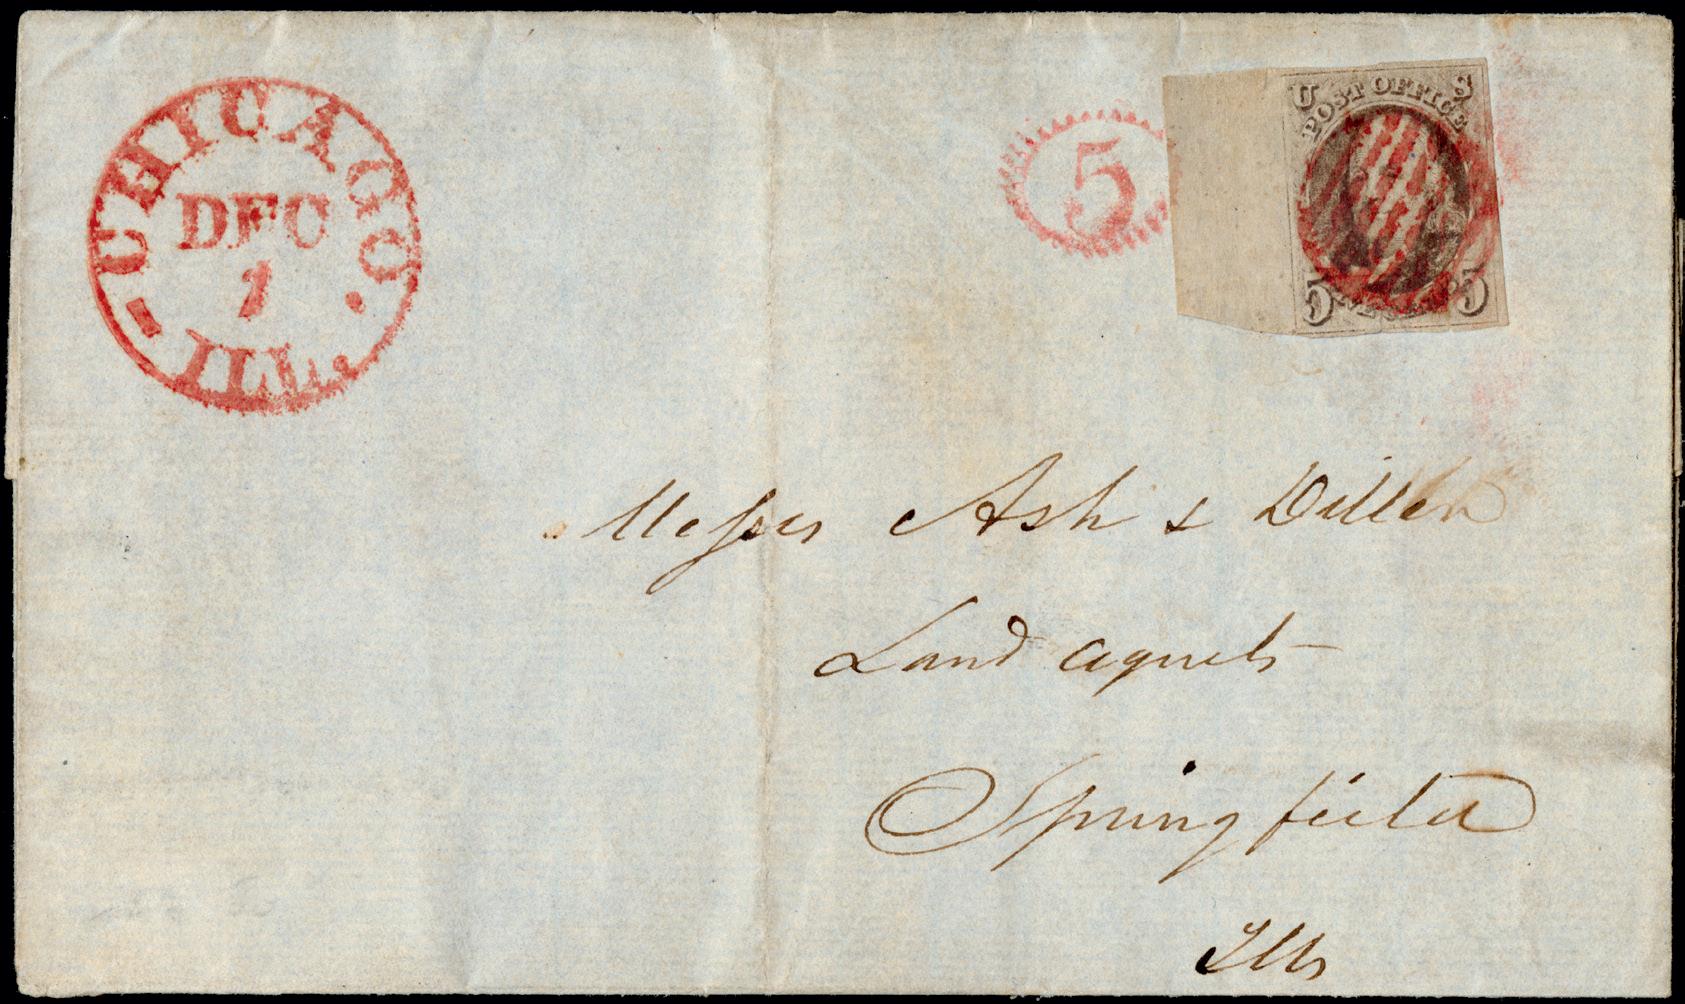 CHICAGO.
DEC
1
ILL.
5
U S
POST OFFICE
5 5
Messrs Ash & Diller
Land agents
Springfield
Ills